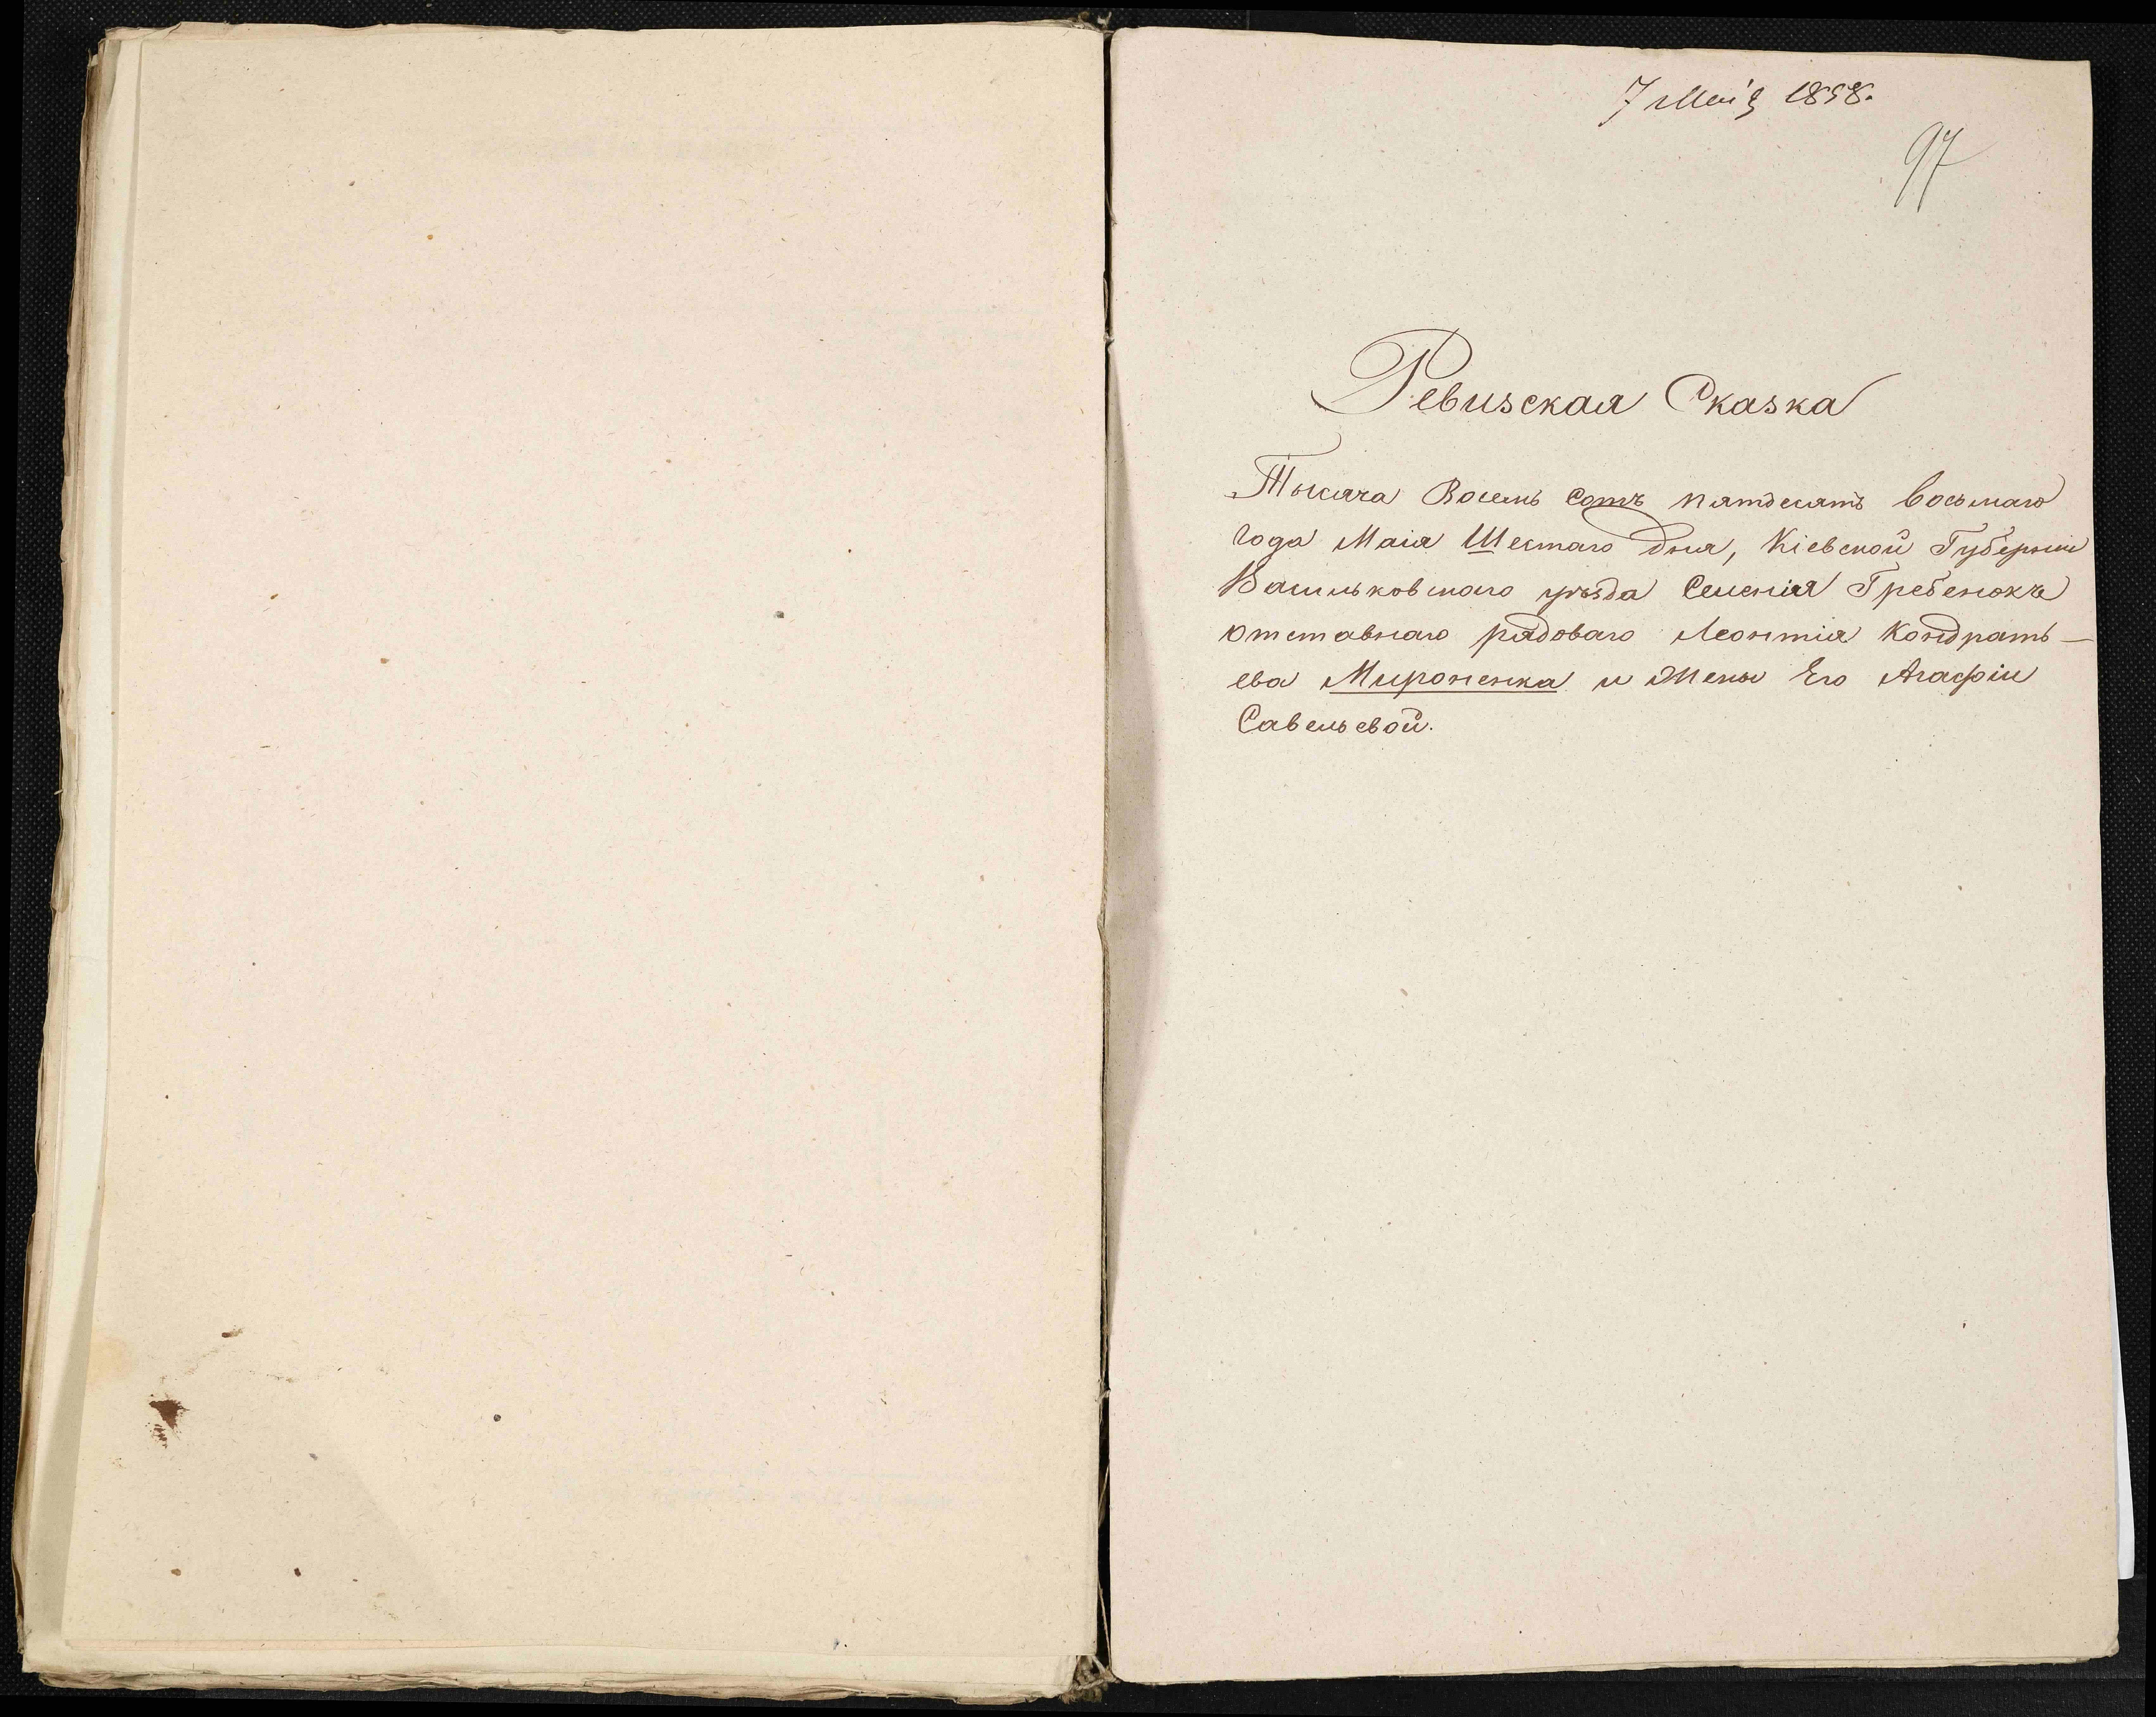 7 Маія 1858.
97
Ревизская Сказка
Тысяча Восемь Сотъ пятдесятъ восьмаго
года Маія Шестаго дня, Кіевской Губерніи
Васильковскаго уѣзда Селенія Гребенокъ
отставнаго рядоваго Леонтія Кондрать-
ева Мироненка и Жены Его Агафіи
Савельевой.